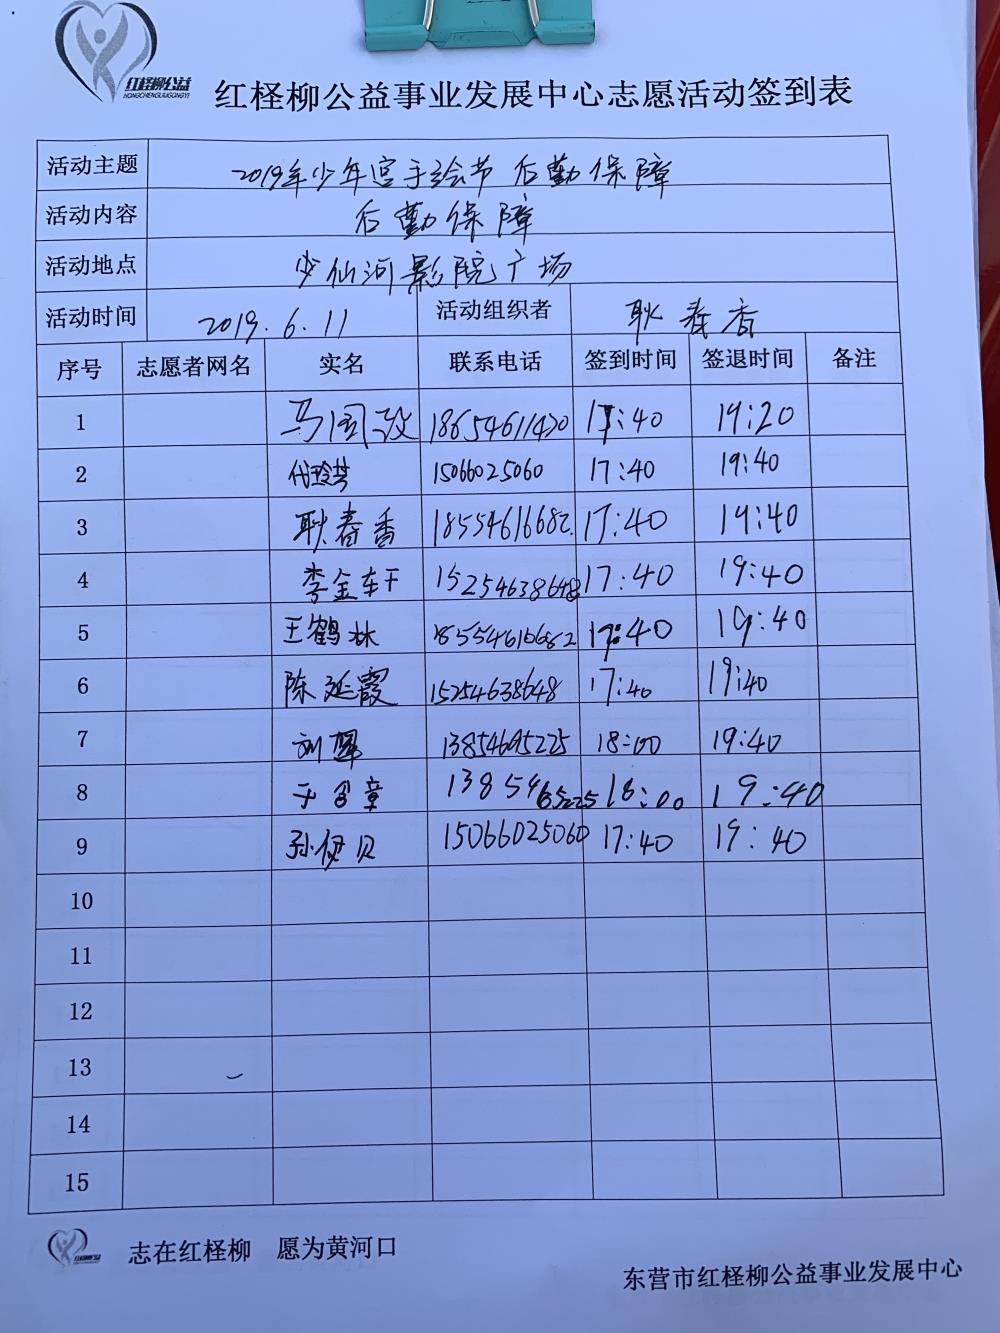 红柽柳公益
HONGCHENGLIUGONGYI
红柽柳公益事业发展中心志愿活动签到表
活动主题 2019年少年宫手绘节 后勤保障
活动内容 后勤保障
活动地点 少仙河影院广场
活动时间 2019.6.11 活动组织者 耿春香
序号 志愿者网名 实名 联系电话 签到时间 签退时间 备注
1 马国政 18654611420 17:40 19:20
2 代玲 15066025060 17:40 19:40
3 耿春香 18554616682 17:40 19:40
4 李金轩 15254638648 17:40 19:40
5 王鹤林 18554616682 17:40 19:40
6 陈延霞 15254638648 17:40 19:40
7 刘翠 13854695225 18:00 19:40
8 于含章 13854695225 18:00 19:40
9 孙伊贝 15066025060 17:40 19:40
10
11
12
13
14
15
志在红柽柳 愿为黄河口
东营市红柽柳公益事业发展中心